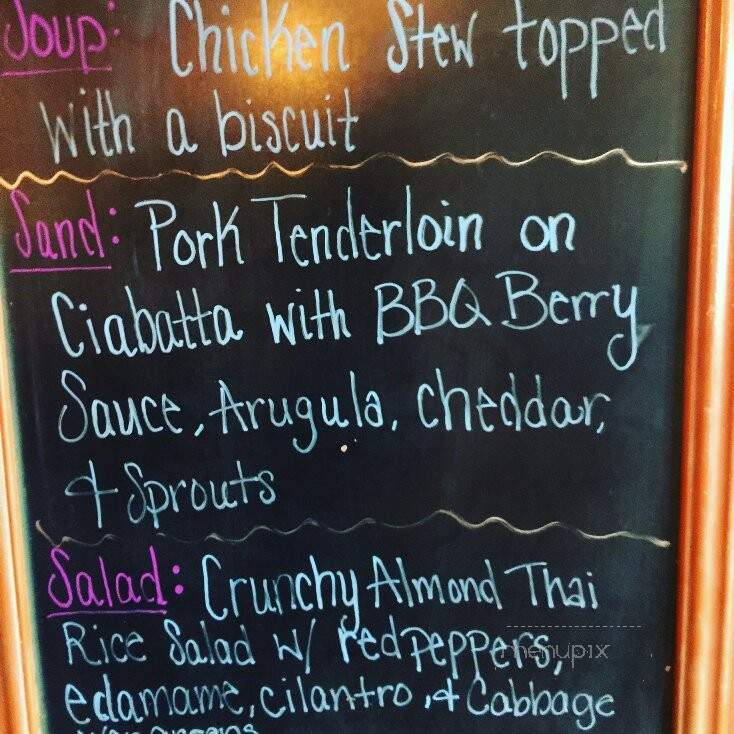 Soup: Chicken Stew topped
with a biscuit
Sand: Pork Tenderloin on
Ciabatta with BBQ Berry
Sauce, Arugula, cheddar,
& Sprouts
Salad: Crunchy Almond Thai
Rice Salad w/ red peppers,
menupix
edamame, cilantro, & Cabbage